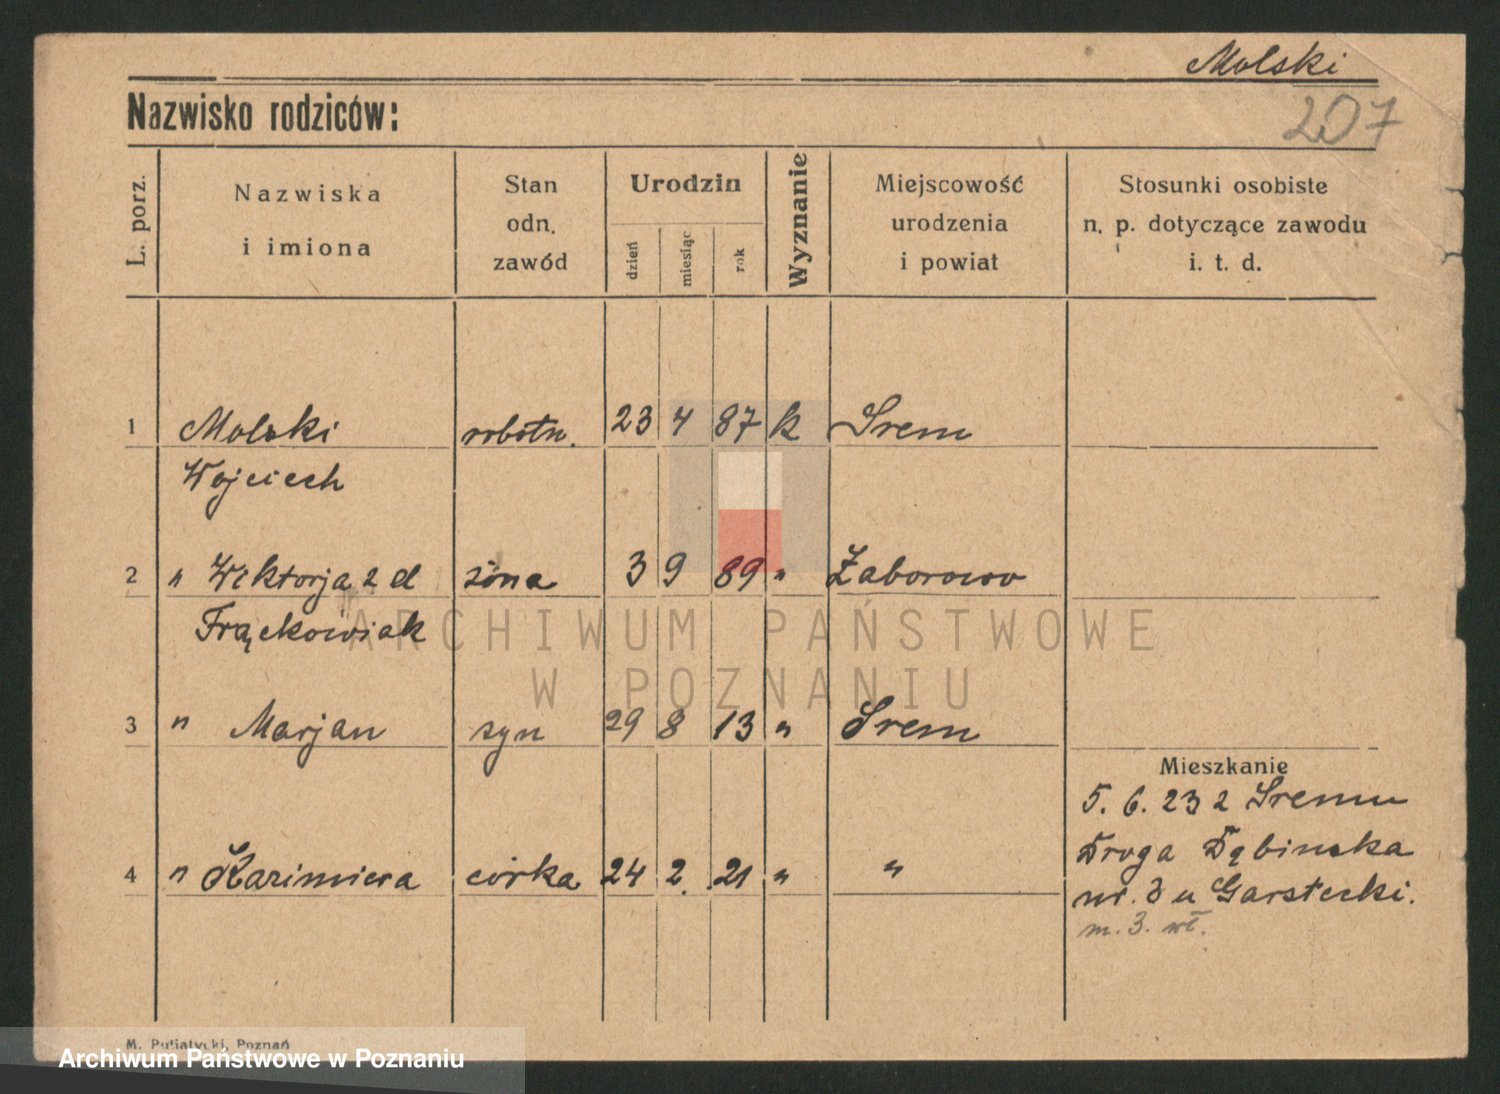 Molski
207
Nazwisko rodziców:
L. porz.
Nazwiska
i imiona
Stan
odn.
zawód
Urodzin
dzień
miesiąc
rok
Wyznanie
Miejscowość
urodzenia
i powiat
Stosunki osobiste
n. p. dotyczące zawodu
i. t. d.
1 Molski robotn. 23 4 87 k Śrem
Wojciech
2 " Wiktorja z d żona 3 9 89 " Zaborowo
Frąckowiak
ARCHIWUM PAŃSTWOWE
W POZNANIU
3 " Marjan syn 29 8 13 " Śrem
Mieszkanie
5. 6. 23 z Śremu
Droga Dąbinska
4 " Kazimiera córka 24 2. 21 " "
nr. 3 u Garstecki.
m. 3. wł.
M. Putiatycki, Poznań
Archiwum Państwowe w Poznaniu